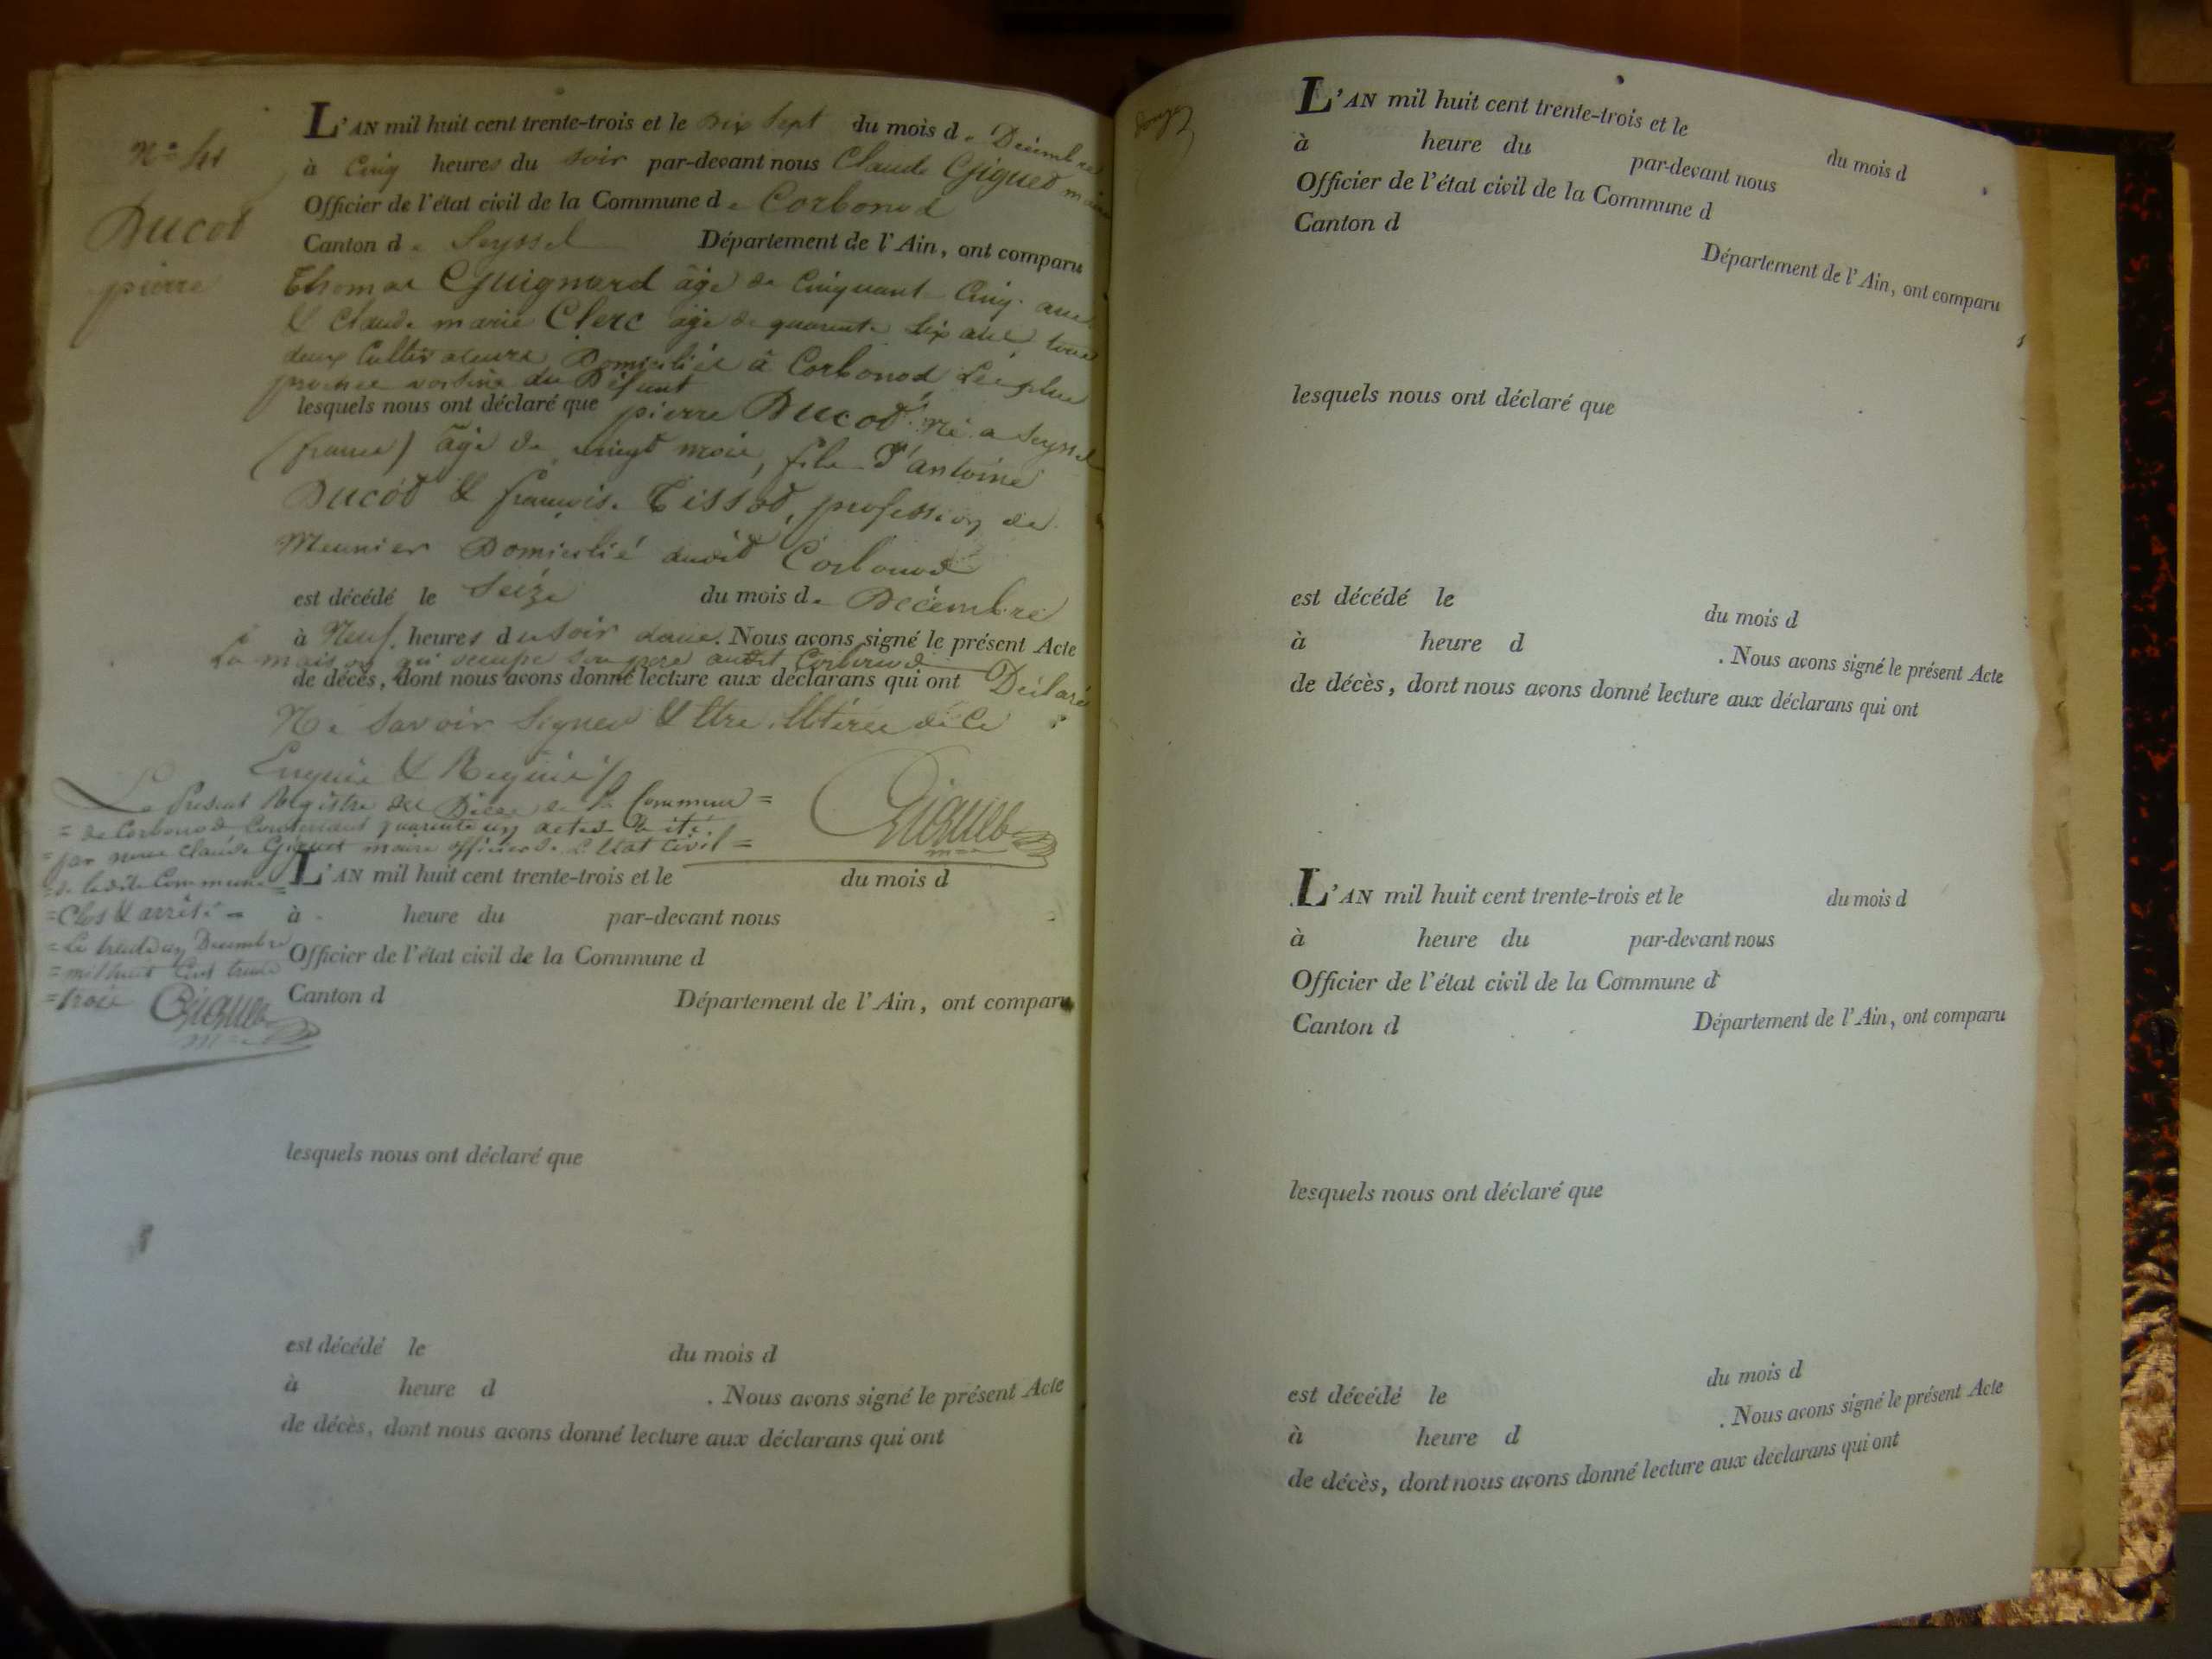 N° 41
Ducot
pierre
L'AN mil huit cent trente-trois et le dix sept du mois de Décembre
à Cinq heures du soir par-devant nous Claude Giguet maire
Officier de l'état civil de la Commune de Corbonod
Canton de Seyssel Département de l'Ain, ont comparu
Thomas Guignard âgé de Cinquante Cinq ans
& Claude marie Clerc âgé de quarante six ans tous
deux Cultivateurs Domiciliés à Corbonod Les plus
proches voisins du Défunt
lesquels nous ont déclaré que pierre Ducot né a Seyssel
(france) âgé de vingt mois, fils d'antoine
Ducot & françoise Tissot, profession de
Meunier Domicilié audit Corbonod
est décédé le Seize du mois de Décembre
à Neuf heures du soir dans. Nous avons signé le présent Acte
La maison qu'occupe son pere audit Corbonod
de décès, dont nous avons donné lecture aux déclarans qui ont Déclaré
Ne savoir signer & Etre illitérés de ce
Enquis & Requis
Giguet
Le Present Registre des Décès de la Commune =
= de Corbonod Contenant quarante un actes a été
= par nous Claude Giguet maire officier de l'Etat Civil =
= de ladite Commune =
= Clos & arrêté =
= Le trente un Decembre
= mil huit Cent trente
= trois Giguet
L'AN mil huit cent trente-trois et le du mois d
à heure du par-devant nous
Officier de l'état civil de la Commune d
Canton d Département de l'Ain, ont comparu
lesquels nous ont déclaré que
est décédé le du mois d
à heure d . Nous avons signé le présent Acte
de décès, dont nous avons donné lecture aux déclarans qui ont
L'AN mil huit cent trente-trois et le du mois d
à heure du par-devant nous
Officier de l'état civil de la Commune d
Canton d Département de l'Ain, ont comparu
lesquels nous ont déclaré que
est décédé le du mois d
à heure d . Nous avons signé le présent Acte
de décès, dont nous avons donné lecture aux déclarans qui ont
L'AN mil huit cent trente-trois et le du mois d
à heure du par-devant nous
Officier de l'état civil de la Commune d
Canton d Département de l'Ain, ont comparu
lesquels nous ont déclaré que
est décédé le du mois d
à heure d . Nous avons signé le présent Acte
de décès, dont nous avons donné lecture aux déclarans qui ont